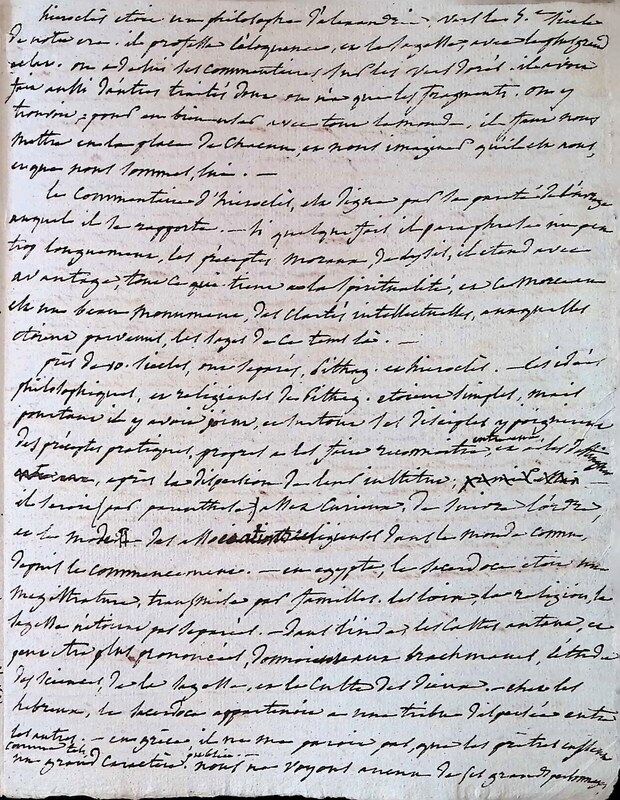 hieroclès etoit un philosophe d'alexandrie, vers le 5.e siècle
de notre ere. il professa l'éloquence, et la sagesse, avec le plus grand
eclat. on a de lui ses commentaires sur les vers dorés. il avoit
fait aussi d'autres traités dont on n'a que les fragments. on y
trouve, pour en bien user avec tout le monde, il faut nous
mettre en la place de chacun, et nous imaginer qu'il est nous,
et que nous sommes, lui. —
le Commentaire d'hieroclès, est digne par sa pureté de l'ouvrage
auquel il se rapporte. — si quelque fois, il paraphrase un peu
trop longuement, les préceptes moraux, de du stil, il etend avec
avantage, tout ce qui tient a la spiritualité, et ce morceau
est un beau monument, des clartés intellectuelles, auxquelles
etoient parvenus, les sages de ce tems là. —
près de 10. siècles, ont separé, Pithag. et hieroclès. — les idées
philosophiques, et religieuses de Pithag. etoient simples, mais
pourtant il y avoit joint, et surtout ses disciples y joignirent
des préceptes pratiques, propres a les faire reconnoitre entr'eux, et a les
après la dispersion de leur institut;
il seroit (par parenthese) assez curieux, de suivre l'ordre,
et le mode des religieuses dans le monde connu,
depuis le commencement. — en egypte, le sacerdoce etoit une
magistrature, transmise par familles. les loix, la religion, la
sagesse n'etoient pas separées. — dans l'inde, les castes autant, et
peut etre plus prononcées, donnoient aux brachmanes, l'étude
des sciences, de la sagesse, et le culte des dieux. — chez les
hebreux, le sacerdoce appartenoit a une tribu dispersée entre
les autres. — en grèce il ne me paroit pas, que les prêtres eussent
comme tels
un grand caractere public. — nous ne voyons aucun de ses grands personnages